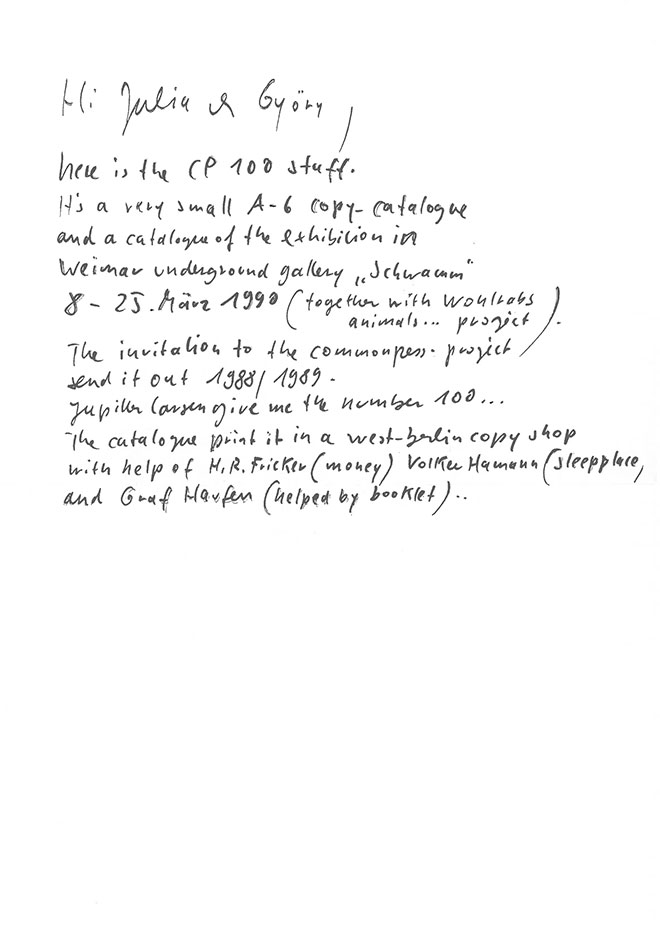 Hi Julia & Györy,
here is the CP 100 stuff.
It's a very small A-6 copy-catalogue
and a catalogue of the exhibition in
Weimar underground gallery „Schwamm"
8 - 25. März 1990 (together with Wohlrabs
animals... project).
The invitation to the commonpress-project
send it out 1988/1989.
Jupitter Larsen give me the number 100...
The catalogue print it in a west-berlin copy shop
with help of H.R. Fricker (money) Volker Hamann (sleepplace,
and Graf Haufen (helped by booklet)..